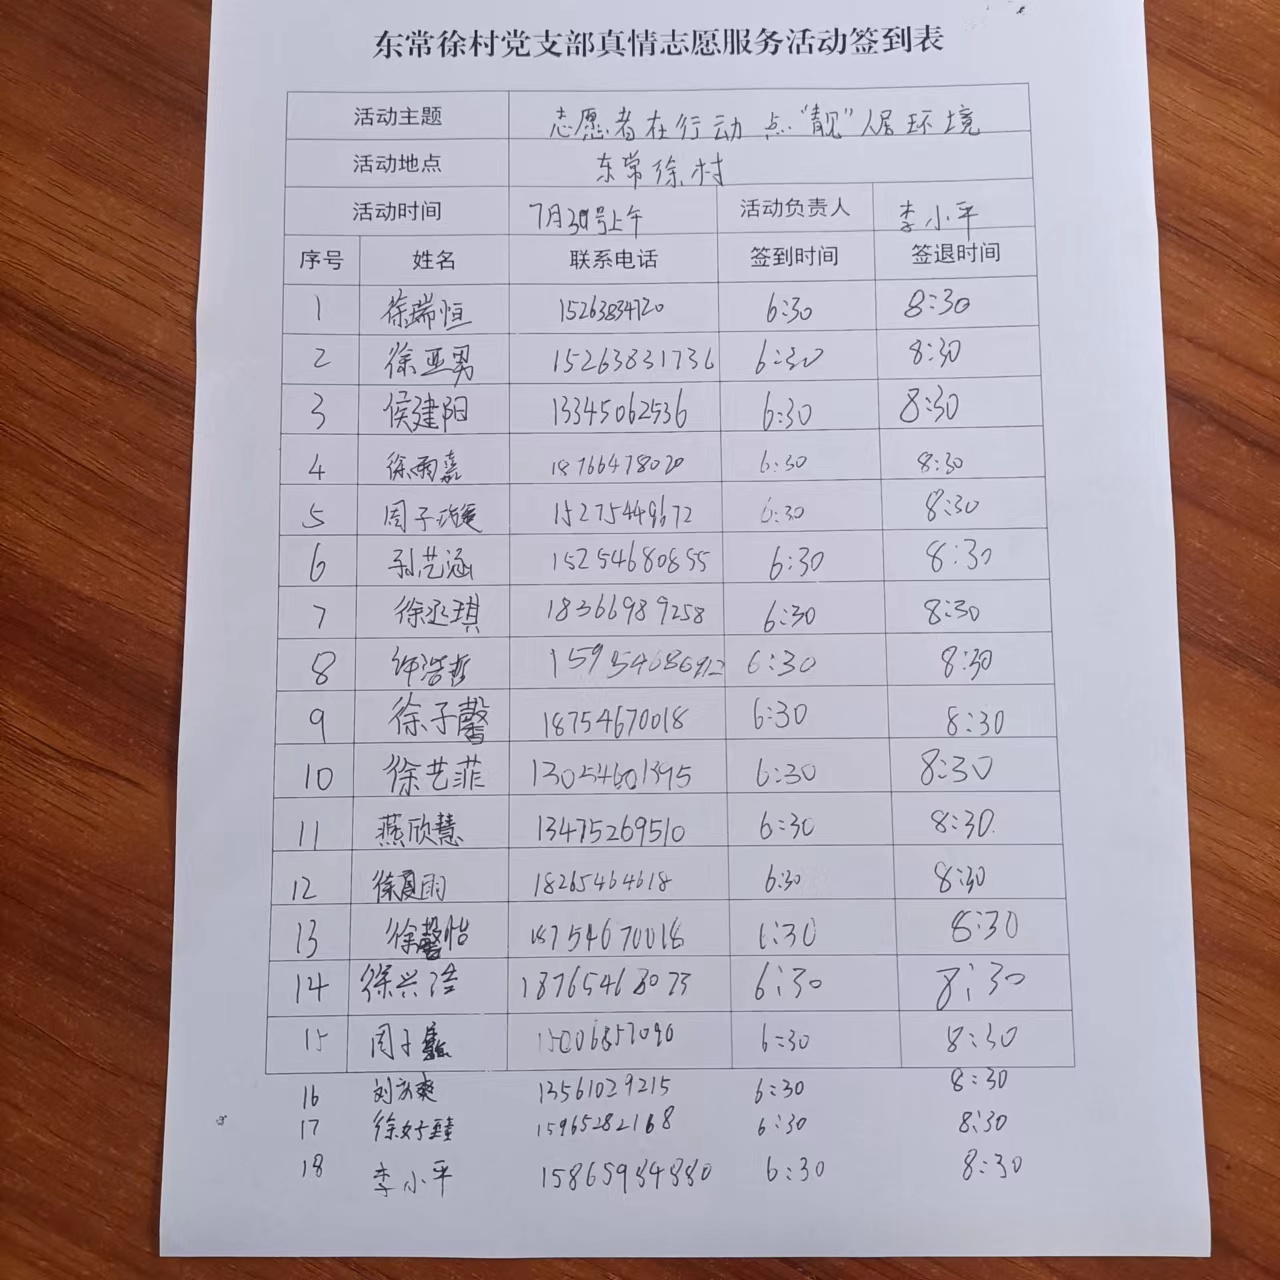 东常徐村党支部真情志愿服务活动签到表
活动主题 志愿者在行动 点“靓”人居环境
活动地点 东常徐村
活动时间 7月30号上午 活动负责人 李小平
序号 姓名 联系电话 签到时间 签退时间
1 徐瑞恒 15263834720 6:30 8:30
2 徐亚男 15263831736 6:30 8:30
3 侯建阳 13345062536 6:30 8:30
4 徐雨嘉 18766478020 6:30 8:30
5 周子媛 15275449672 6:30 8:30
6 孙艺涵 15254680855 6:30 8:30
7 徐丞琪 18366989258 6:30 8:30
8 许浩哲 15954686912 6:30 8:30
9 徐子馨 18754670018 6:30 8:30
10 徐艺菲 13054601395 6:30 8:30
11 燕欣慧 13475269510 6:30 8:30
12 徐夏雨 18265464618 6:30 8:30
13 徐馨怡 18754670018 6:30 8:30
14 徐兴浩 18765468073 6:30 8:30
15 周子 15006857090 6:30 8:30
16 刘爽 13561029215 6:30 8:30
17 徐 15965282168 6:30 8:30
18 李小平 15865984880 6:30 8:30